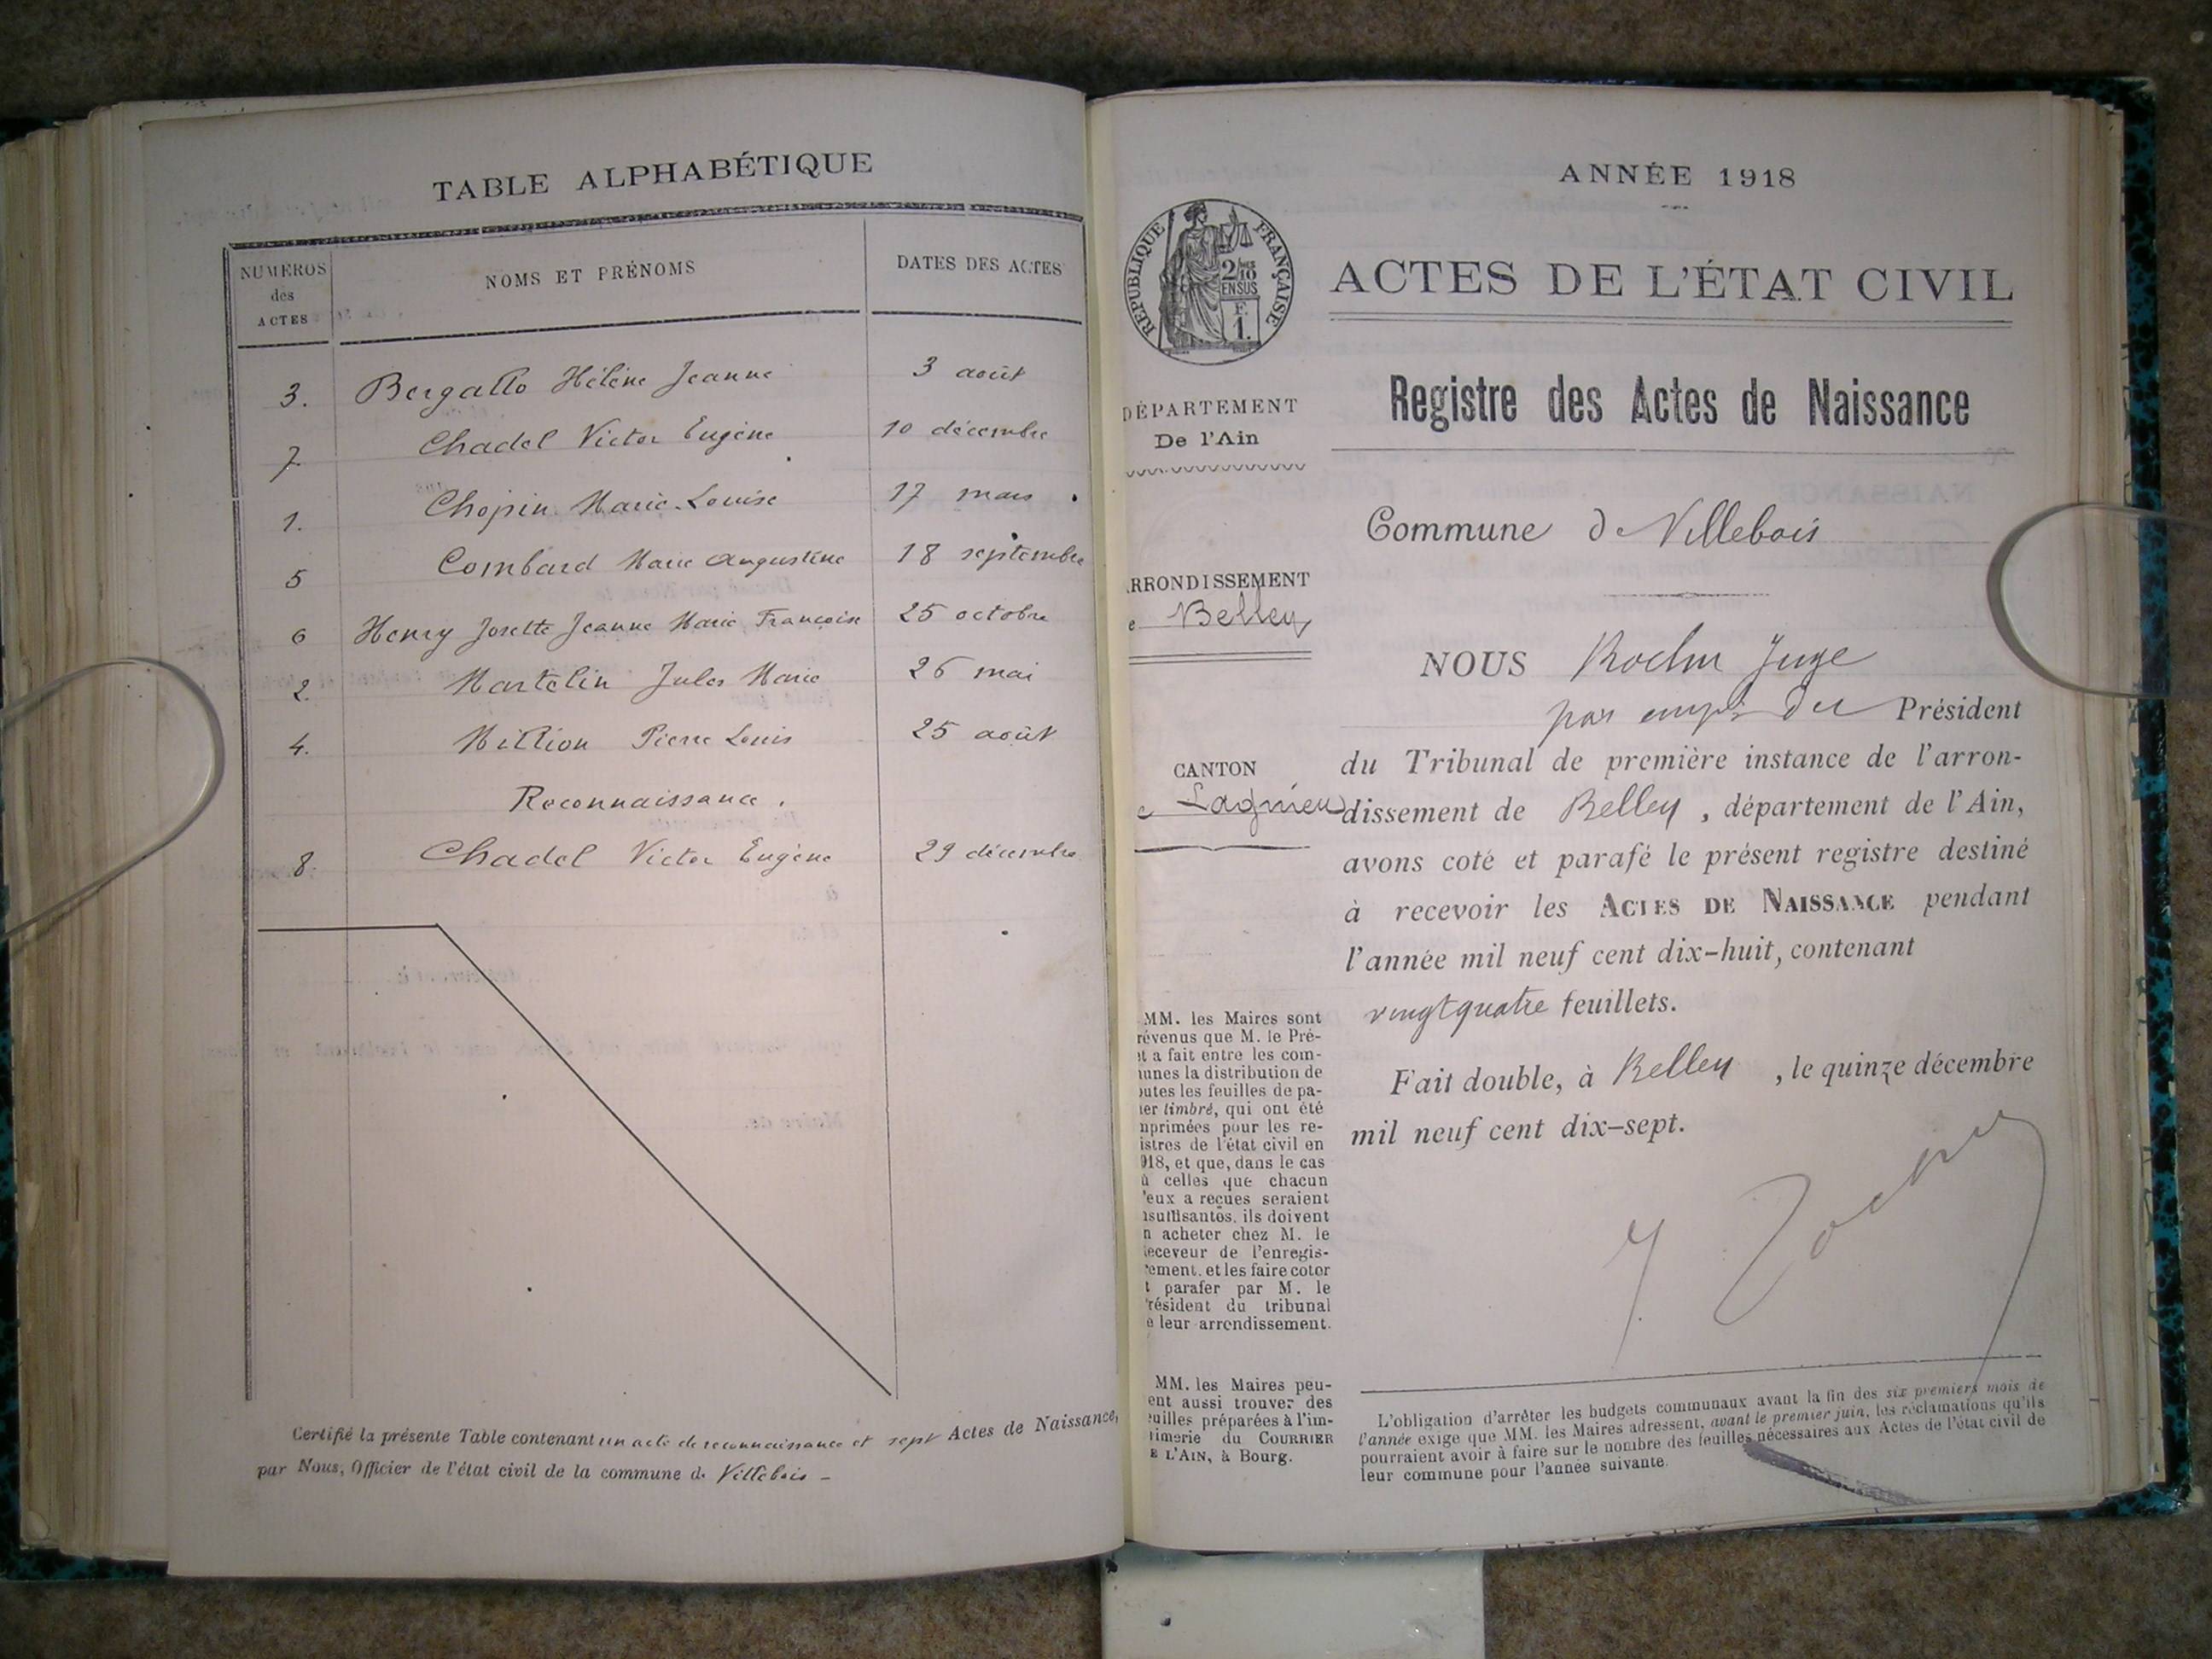 TABLE ALPHABÉTIQUE
NUMÉROS des ACTES
NOMS ET PRÉNOMS
DATES DES ACTES
3. Bergatto Hélène Jeanne 3 août
7. Chadel Victor Eugène 10 décembre
1. Chopin Marie-Louise 17 mars
5 Combard Marie Augustine 18 septembre
6 Henry Josette Jeanne Marie Françoise 25 octobre
2. Martelin Jules Marie 26 mai
4. Million Pierre Louis 25 août
Reconnaissance.
8. Chadel Victor Eugène 29 décembre
Certifié la présente Table contenant un acte de reconnaissance et sept Actes de Naissance,
par Nous, Officier de l'état civil de la commune de Villebois -
ANNÉE 1918
RÉPUBLIQUE FRANÇAISE
2/10
EN SUS
F.
1.
ACTES DE L'ÉTAT CIVIL
DÉPARTEMENT
De l'Ain
RRONDISSEMENT
e Belley
CANTON
e Lagnieu
MM. les Maires sont
révenus que M. le Pré-
et a fait entre les com-
unes la distribution de
outes les feuilles de pa-
ier timbré, qui ont été
mprimées pour les re-
istres de l'état civil en
918, et que, dans le cas
ù celles que chacun
'eux a reçues seraient
nsuffisantes, ils doivent
n acheter chez M. le
eceveur de l'enregis-
rement, et les faire coter
t parafer par M. le
résident du tribunal
e leur arrondissement.
MM. les Maires peu-
ent aussi trouver des
euilles préparées à l'im-
rimerie du COURRIER
E L'AIN, à Bourg.
Registre des Actes de Naissance
Commune de Villebois
NOUS Rocher Juge
par emp. du Président
du Tribunal de première instance de l'arron-
dissement de Belley, département de l'Ain,
avons coté et parafé le présent registre destiné
à recevoir les ACTES DE NAISSANCE pendant
l'année mil neuf cent dix-huit, contenant
vingt quatre feuillets.
Fait double, à Belley, le quinze décembre
mil neuf cent dix-sept.
L'obligation d'arrêter les budgets communaux avant la fin des six premiers mois de
l'année exige que MM. les Maires adressent, avant le premier juin, les réclamations qu'ils
pourraient avoir à faire sur le nombre des feuilles nécessaires aux Actes de l'état civil de
leur commune pour l'année suivante.